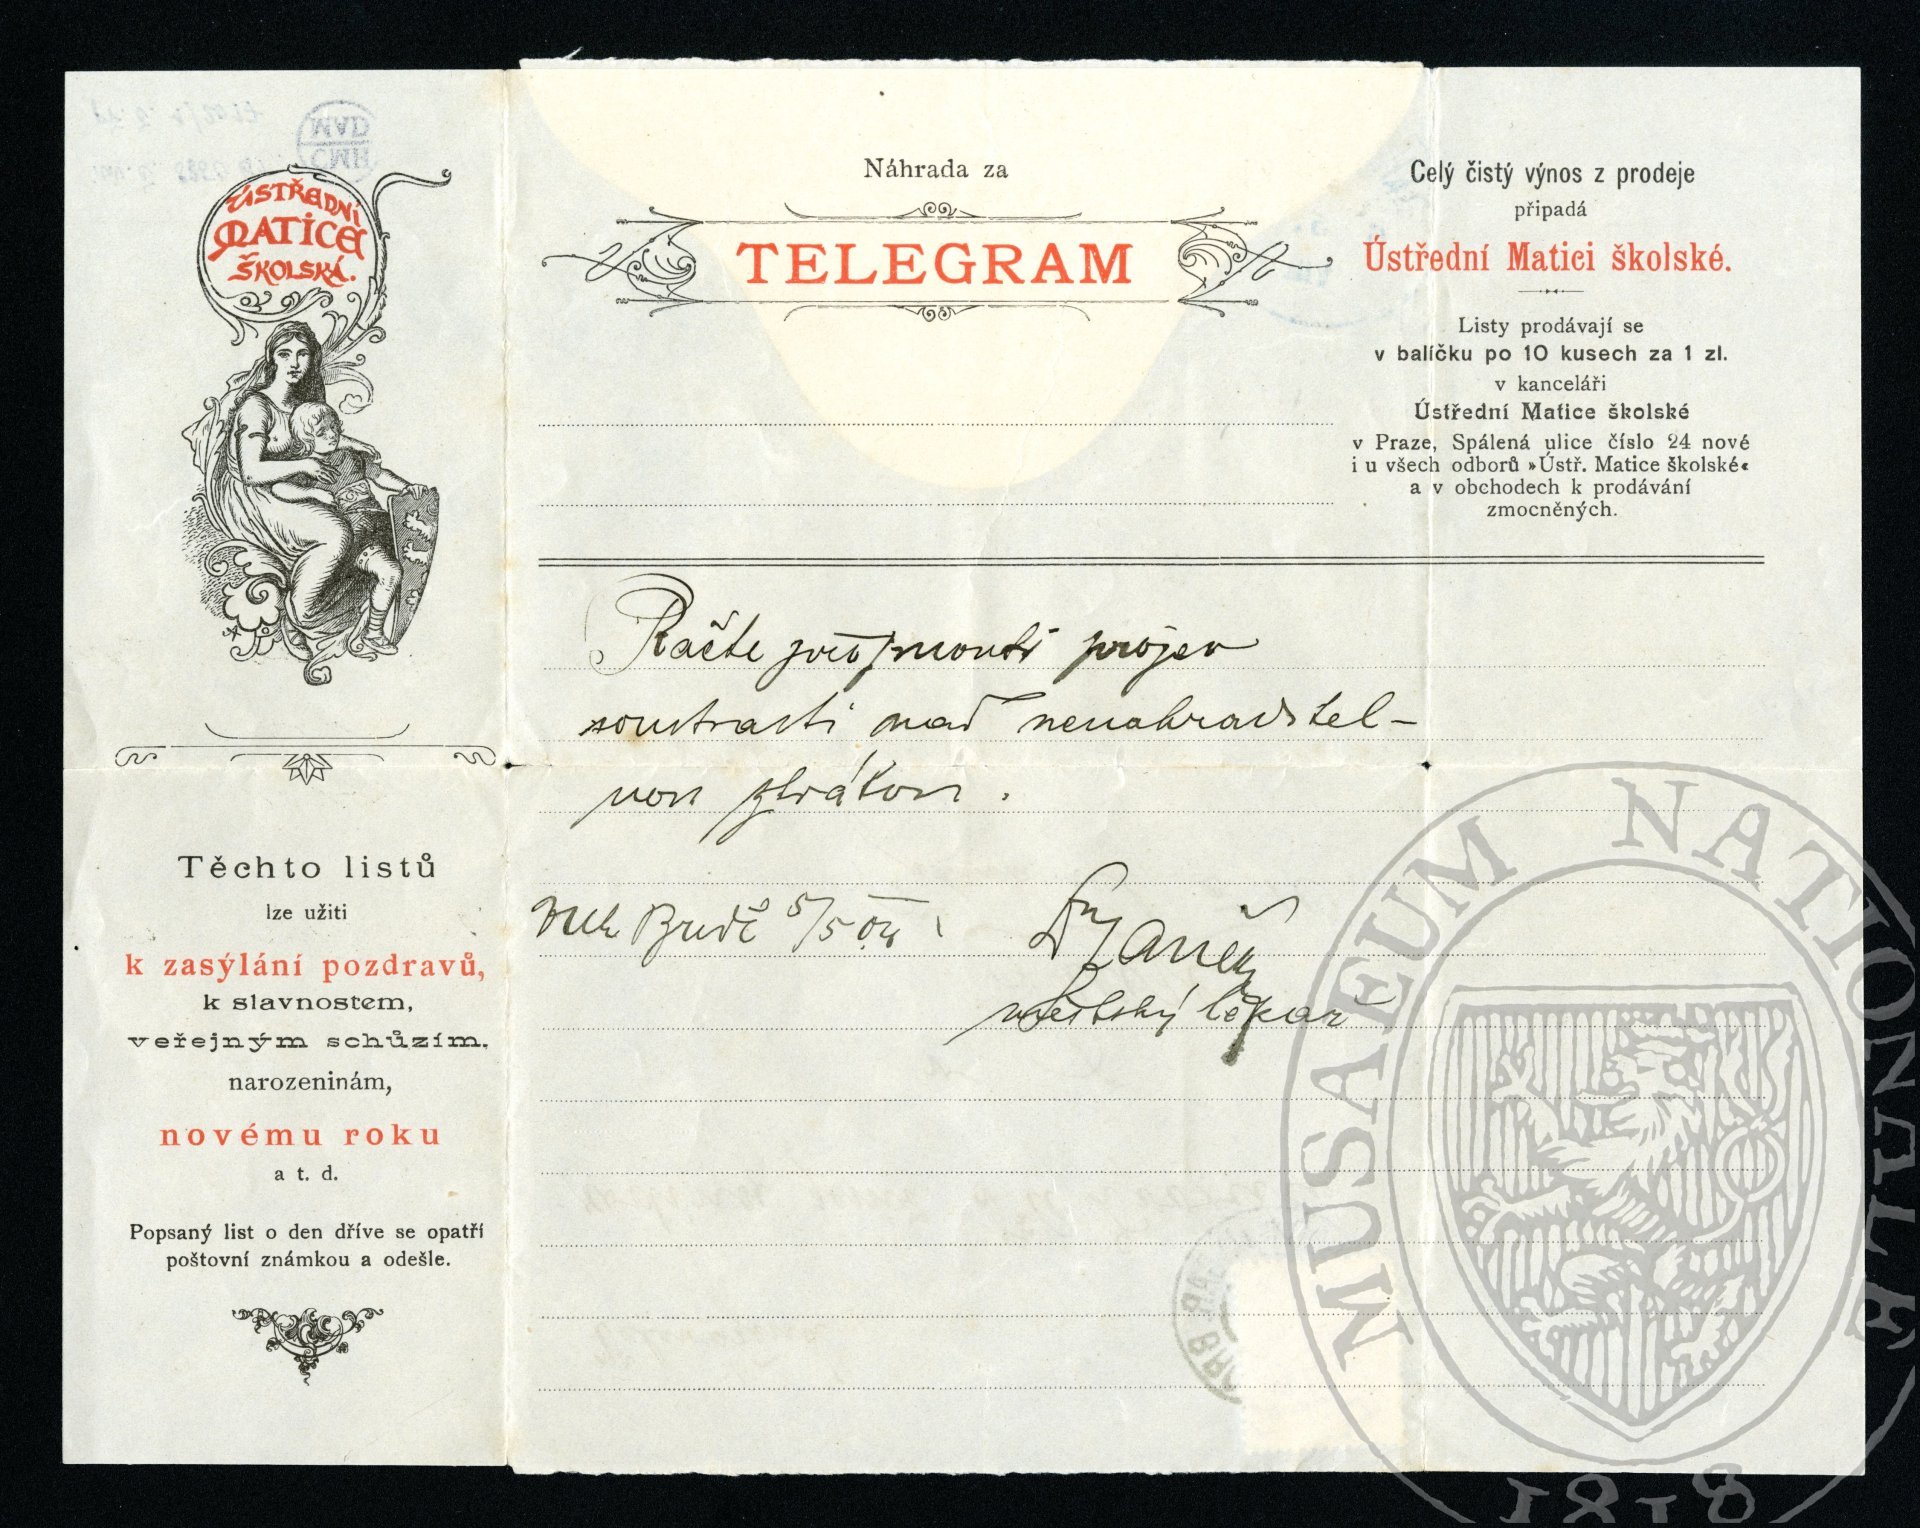 ÚSTŘEDNÍ
MATICE
ŠKOLSKÁ.
Těchto listů
lze užiti
k zasýlání pozdravů,
k slavnostem,
veřejným schůzím,
narozeninám,
novému roku
a t. d.
Popsaný list o den dříve se opatří
poštovní známkou a odešle.
Náhrada za
TELEGRAM
Celý čistý výnos z prodeje
připadá
Ústřední Matici školské.
Listy prodávají se
v balíčku po 10 kusech za 1 zl.
v kanceláři
Ústřední Matice školské
v Praze, Spálená ulice číslo 24 nové
i u všech odborů »Ústř. Matice školské«
a v obchodech k prodávání
zmocněných.
Račte projev
soustrasti nad nenahraditel-
nou ztrátou.
5/5 04
městský lékař
CMH
MAD
MUSAEUM NATIONALE
1818